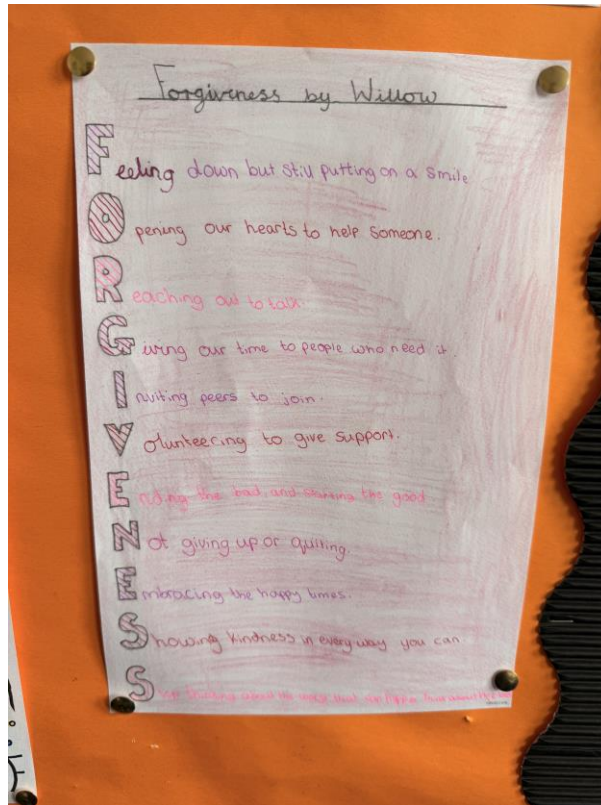 Forgiveness by Willow
Feeling down but still putting on a smile
Opening our hearts to help someone.
Reaching out to talk.
Giving our time to people who need it.
Inviting peers to join.
Volunteering to give support.
Ending the bad, and starting the good
Not giving up or quiting.
Embracing the happy times.
Showing kindness in every way you can
Stop thinking about the